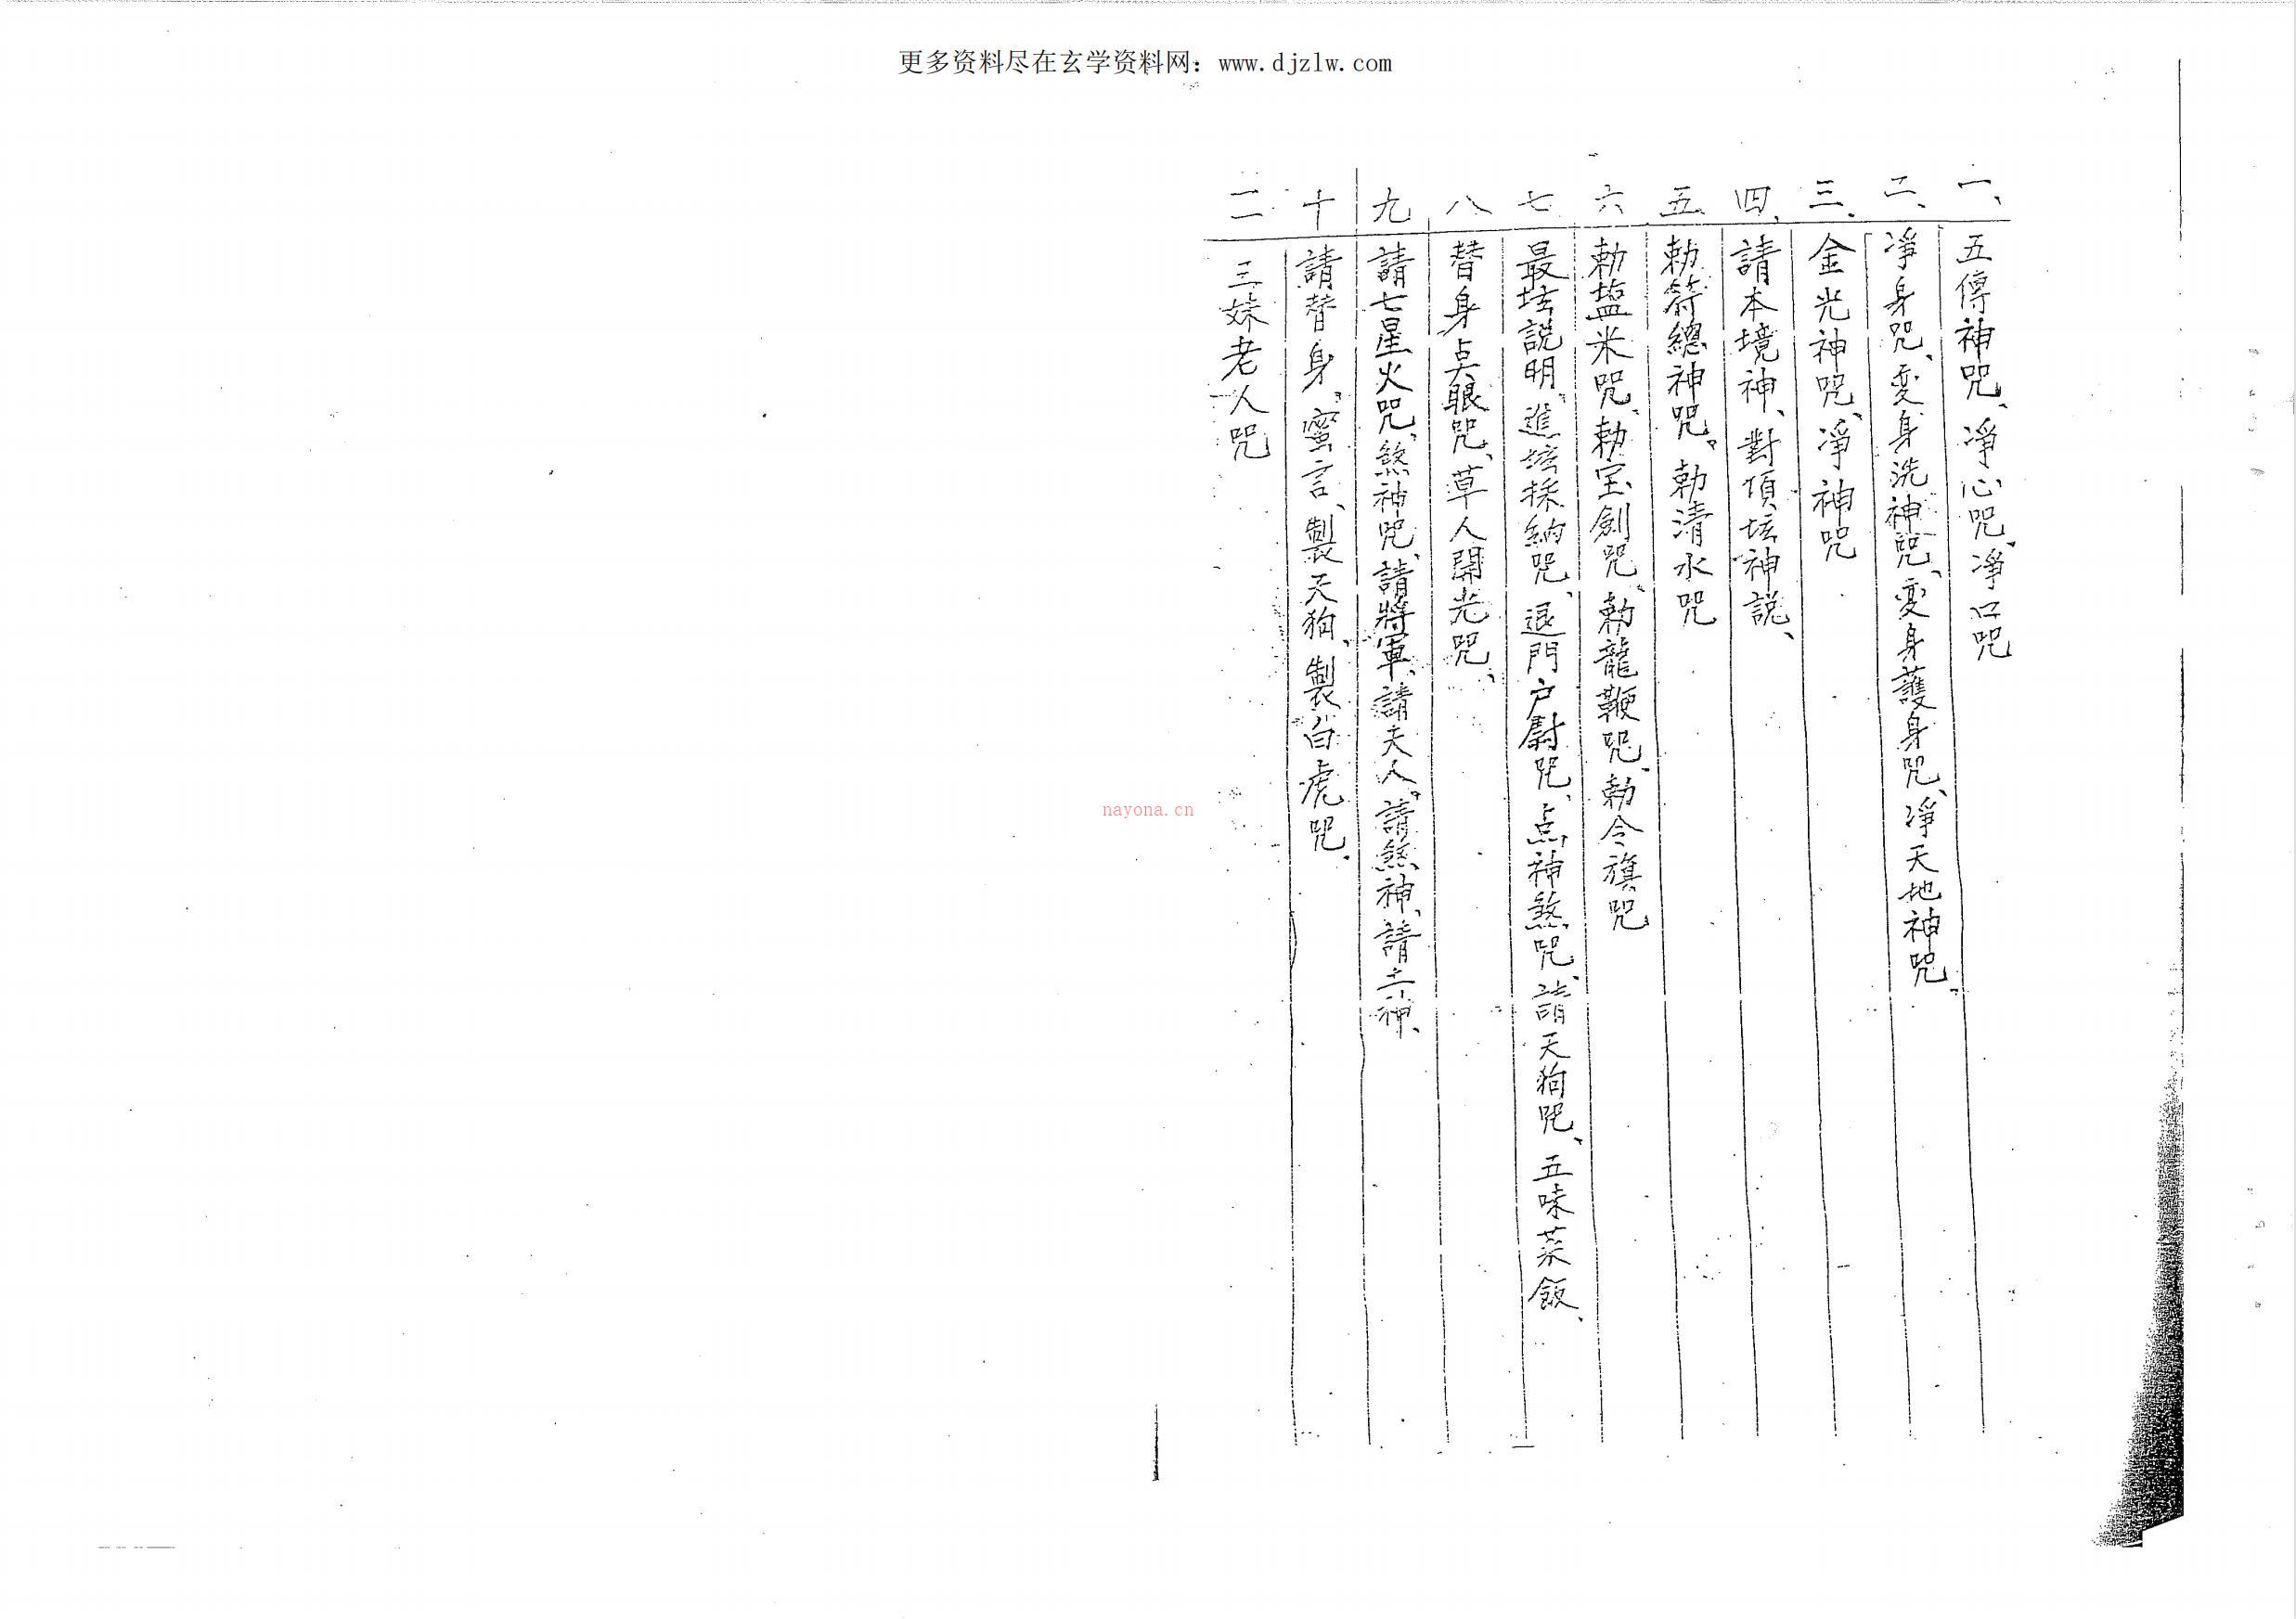 更多资料尽在玄学资料网：www.djzlw.com
一、五傳神咒、淨心咒、淨口咒
二、淨身咒、変身洗神咒、変身護身咒、淨天地神咒、
三、金光神咒、淨神咒
四、請本境神、對頂坛神説、
五、勅符總神咒、勅清水咒
六 勅塩米咒、勅宝劍咒、勅龍鞭咒、勅令旗咒
七 最坛説明、進坛採納咒、退門户尉咒、点神煞咒、請天狗咒、五味菜飯、
八 替身点眼咒、草人開光咒、
九 請七星火咒、煞神咒、請將軍、請夫人、請煞神、請土神、
十 請替身、蜜言、製天狗、製白虎咒、
二 三妹老人咒
nayona.cn